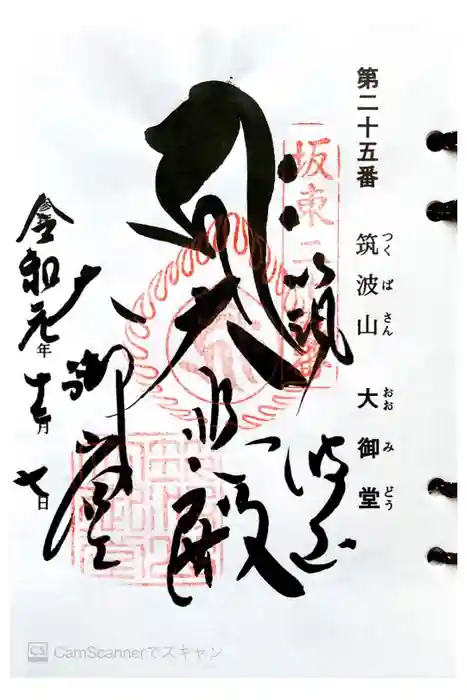 第二十五番 筑波山 大御堂
つくばさん おおみどう
坂東二
筑波山
大悲殿
大御堂
令和元年十二月七日
CS CamScannerでスキャン